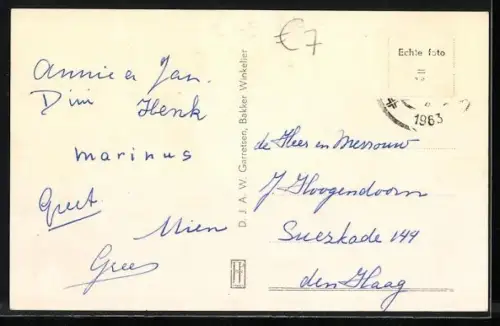 €7
Annie en Jan.
Dini Henk
Marinus
Greet
Mien
Grees
D. J. A. W. Garretsen, Bakker Winkelier
Echte foto
1963
de Heer en Mevrouw
J. Hoogendoorn
Suezkade 149
den Haag